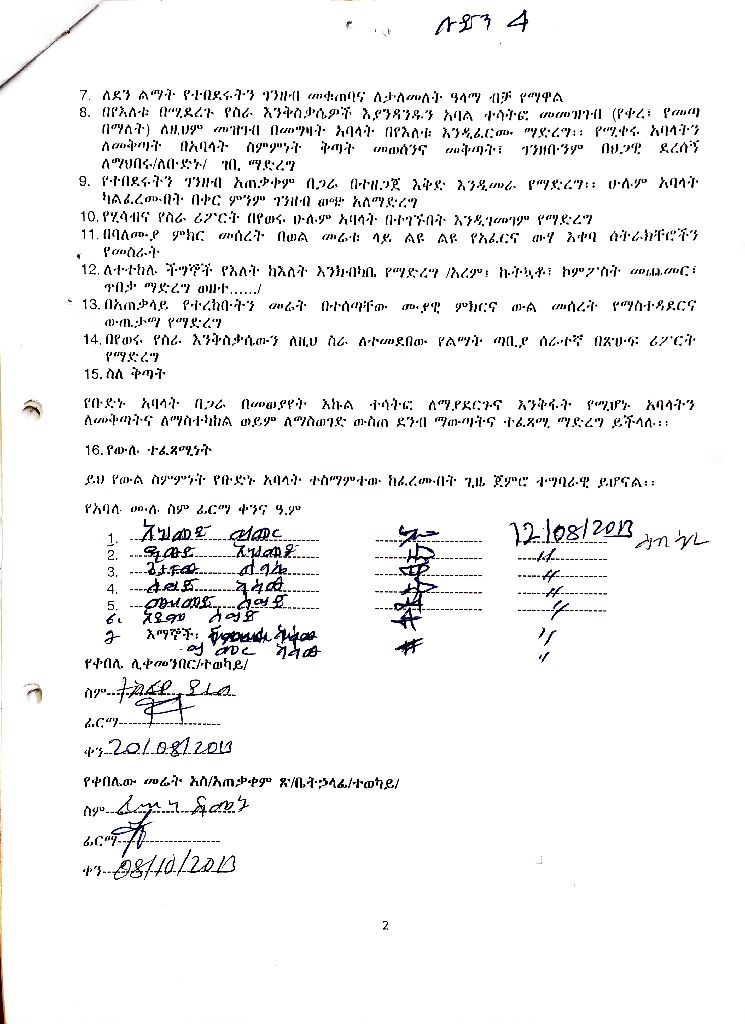 4
7. ለደን ልማት የተበደሩትን ገንዘብ መቁጠባና ለታለመለት ዓላማ ብቻ የማዋል
8. በየእለቱ በሚደረጉ የስራ እንቅስቃሴዎች እያንዳንዱን አባል ተሳትፎ መመዝገብ (የቀረ፣ የመጣ
በማለት) ለዚህም መዝገብ በመግዛት አባላት በየእለቱ እንዲፈርሙ ማድረግ፡፡ የሚቀሩ አባላትን
ለመቅጣት በአባላት ስምምነት ቅጣት መወሰንና መቅጣት፣ ገንዘቡንም በህጋዊ ደረሰኝ
ለማህበሩ/ለቡድኑ/ ገቢ ማድረግ
9. የተበደሩትን ገንዘብ አጠቃቀም በጋራ በተዘጋጀ እቅድ እንዲመራ የማድረግ፡፡ ሁሉም አባላት
ካልፈረሙበት በቀር ምንም ገንዘብ ወጭ አለማድረግ
10. የሂሳብና የስራ ሪፖርት በየወሩ ሁሉም አባላት በተገኙበት እንዲገመገም የማድረግ
11. በባለሙያ ምክር መሰረት በወል መሬቱ ላይ ልዩ ልዩ የአፈርና ውሃ እቀባ ስትራክቸሮችን
የመስራት
12. ለተተከሉ ችግኞች የእለት ከእለት እንክብካቤ የማድረግ /አረም፣ ኩትኳቶ፣ ኮምፖስት መጨመር፣
ጥበቃ ማድረግ ወዘተ....../
13. በአጠቃላይ የተረከቡትን መሬት በተሰጣቸው ሙያዊ ምክርና ውል መሰረት የማስተዳደርና
ውጤታማ የማድረግ
14. በየወሩ የስራ እንቅስቃሴውን ለዚህ ስራ ለተመደበው የልማት ጣቢያ ሰራተኛ በጽሁፍ ሪፖርት
የማድረግ
15. ስለ ቅጣት
የቡድኑ አባላት በጋራ በመወያየት እኩል ተሳትፎ ለማያደርጉና እንቅፋት የሚሆኑ አባላትን
ለመቅጣትና ለማስተካከል ወይም ለማስወገድ ውስጠ ደንብ ማውጣትና ተፈጻሚ ማድረግ ይችላሉ፡፡
16. የውሉ ተፈጻሚነት
ይህ የውል ስምምነት የቡድኑ አባላት ተስማምተው ከፈረሙበት ጊዜ ጀምሮ ተግባራዊ ይሆናል፡፡
የአባሉ ሙሉ ስም ፊርማ ቀንና ዓ.ም
1. አህመድ 12/08/2013
2. አህመድ 〃
3. 〃
4. ሰይድ 〃
5. መሀመድ ሰይድ 〃
6.
7 እማኞች፡ 〃
〃
የቀበሌ ሊቀመንበር/ተወካይ/
ስም
ፊርማ
ቀን 20/08/2013
የቀበሌው መሬት አስ/አጠቃቀም ጽ/ቤት ኃላፊ/ተወካይ/
ስም
ፊርማ
ቀን 08/10/2013
2